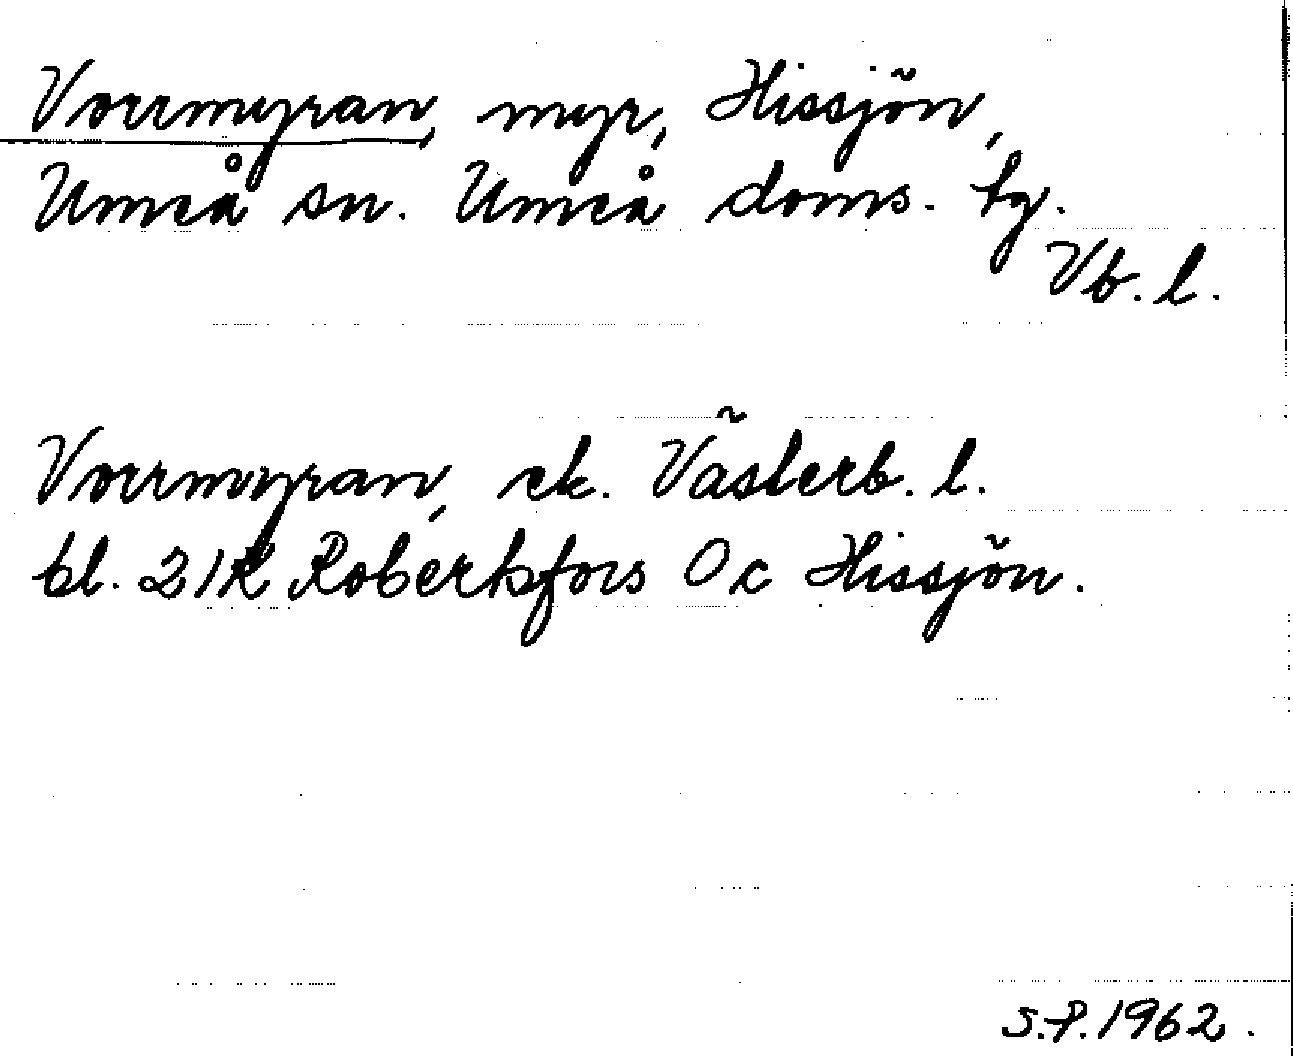 Vorrmyran, myr, Hissjön,
Umeå sn. Umeå doms. tg.
Vb. l.
Vorrmyran, ek. Västerb. l.
bl. 21K Robertsfors 0c Hissjön.
S.P. 1962.